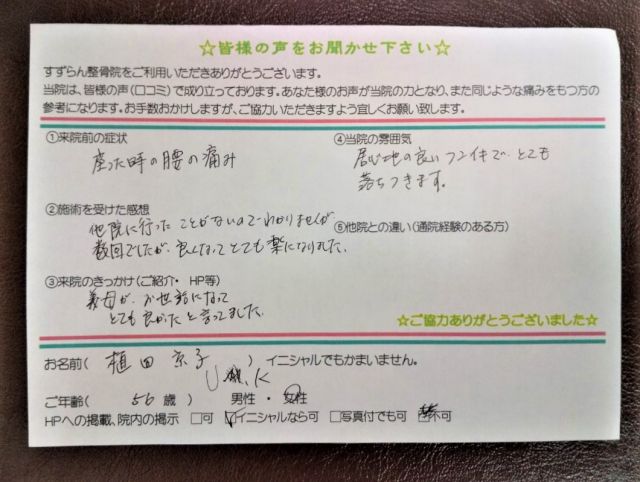 ☆皆様の声をお聞かせ下さい☆
すずらん整骨院をご利用いただきありがとうございます。
当院は、皆様の声(口コミ)で成り立っております。あなた様のお声が当院の力となり、また同じような痛みをもつ方の
参考になります。お手数おかけしますが、ご協力いただきますよう宜しくお願い致します。
①来院前の症状
座った時の腰の痛み
②施術を受けた感想
他院に行ったことがないのでわかりませんが
数回でしたが、良くなってとても楽になりました。
③来院のきっかけ(ご紹介・ HP等)
義母が、お世話になって
とても良かったと言ってました。
④当院の雰囲気
居心地の良いフンイキで、とても
落ちつきます。
⑤他院との違い(通院経験のある方)
☆ご協力ありがとうございました☆
お名前( 植田 京子 ) イニシャルでもかまいません。
U. K
ご年齢( 56 歳 ) 男性・女性
HPへの掲載、院内の掲示 □可 ☑イニシャルなら可 □写真付でも可 □不可